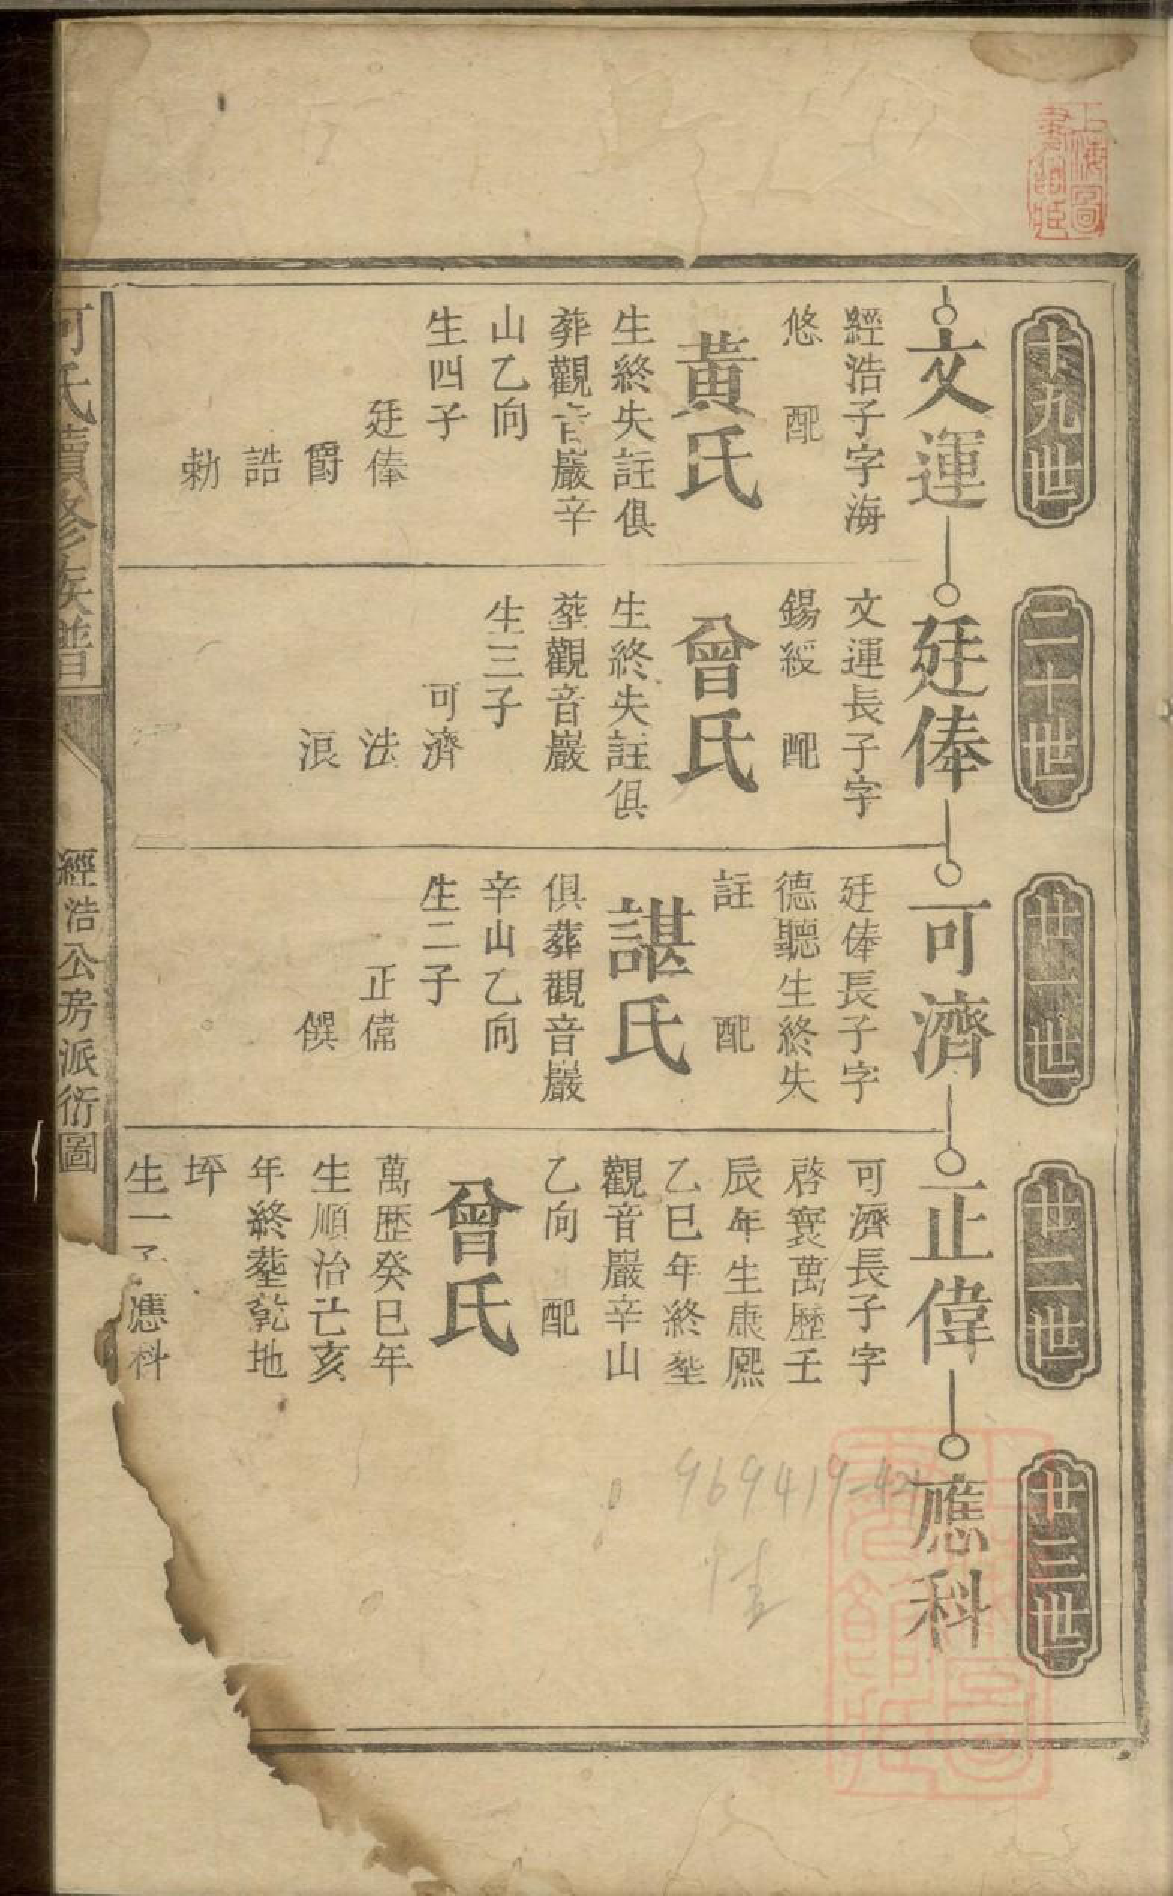 上海圖
書館藏
十九世
文運
經浩子字海
悠 配
黃氏
生終失註俱
葬觀音巖辛
山乙向
生四子
廷俸
爵
誥
勅
二十世
廷俸
文運長子字
錫綬 配
曾氏
生終失註俱
塟觀音巖
生三子
可濟
法
浪
廿一世
可濟
廷俸長子字
德聽生終失
註 配
諶氏
俱葬觀音巖
辛山乙向
生二子
正偉
僎
廿二世
正偉
可濟長子字
啓寰萬歷壬
辰年生康熈
乙巳年終塟
觀音巖辛山
乙向 配
曾氏
萬歷癸巳年
生順治亡亥
年終塟乾地
坪
生一子應科
廿三世
應科
969419-42
何氏續修族譜
經浩公房派衍圖